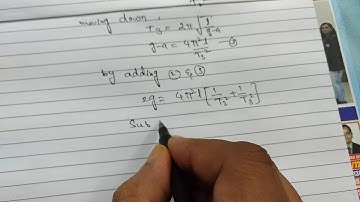 moving down,
T₃ = 2π√(l/(g-a))
g-a = 4π²l/T₃² — ③
by adding ② & ③
2g = 4π²l [1/T₂² + 1/T₃²]
Sub